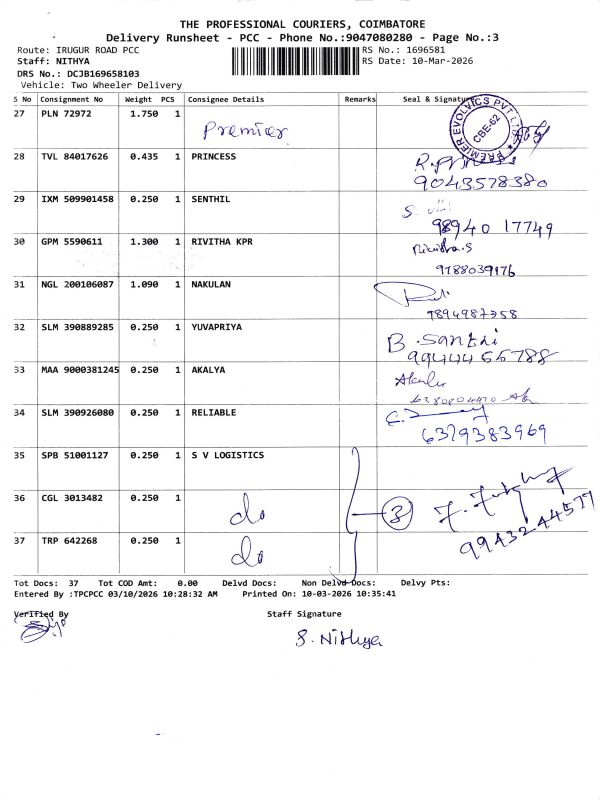 THE PROFESSIONAL COURIERS, COIMBATORE
Delivery Runsheet - PCC - Phone No.:9047080280 - Page No.:3
Route: IRUGUR ROAD PCC RS No.: 1696581
Staff: NITHYA RS Date: 10-Mar-2026
DRS No.: DCJB169658103
Vehicle: Two Wheeler Delivery
S No Consignment No Weight PCS Consignee Details Remarks Seal & Signature
27 PLN 72972 1.750 1 Premier
PREMIER EVOLVICS PVT LTD CBE-62
28 TVL 84017626 0.435 1 PRINCESS
9043578380
29 IXM 509901458 0.250 1 SENTHIL
98940 17749
30 GPM 5590611 1.300 1 RIVITHA KPR Rivitha.S
9788039176
31 NGL 200106087 1.090 1 NAKULAN
9894987358
32 SLM 390889285 0.250 1 YUVAPRIYA B.
9944455788
33 MAA 9000381245 0.250 1 AKALYA Akalya
34 SLM 390926080 0.250 1 RELIABLE
6379383969
35 SPB 51001127 0.250 1 S V LOGISTICS
36 CGL 3013482 0.250 1 do 3
99432 44577
37 TRP 642268 0.250 1 do
Tot Docs: 37 Tot COD Amt: 0.00 Delvd Docs: Non Delvd Docs: Delvy Pts:
Entered By :TPCPCC 03/10/2026 10:28:32 AM Printed On: 10-03-2026 10:35:41
Verified By Staff Signature
S. Nithya